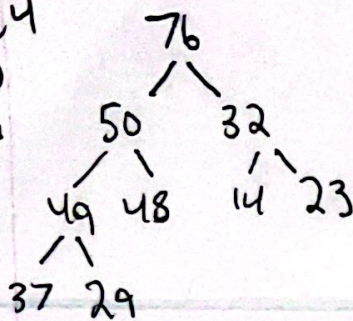 4
76
50 32
49 48 14 23
37 29